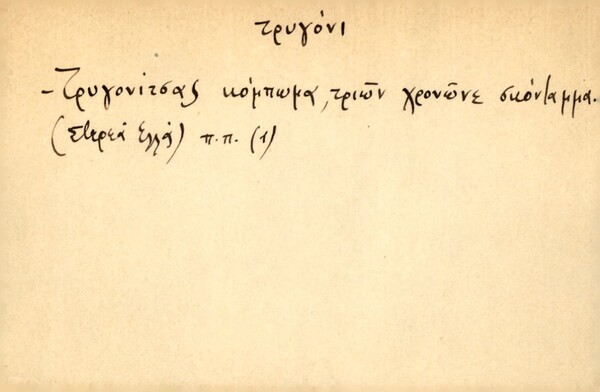 τρυγόνι
- Τρυγονίτσας κόμπωμα, τριῶν χρονῶνε σκόνταμμα.
(Στερεά Ἑλλά) π.π. (1)